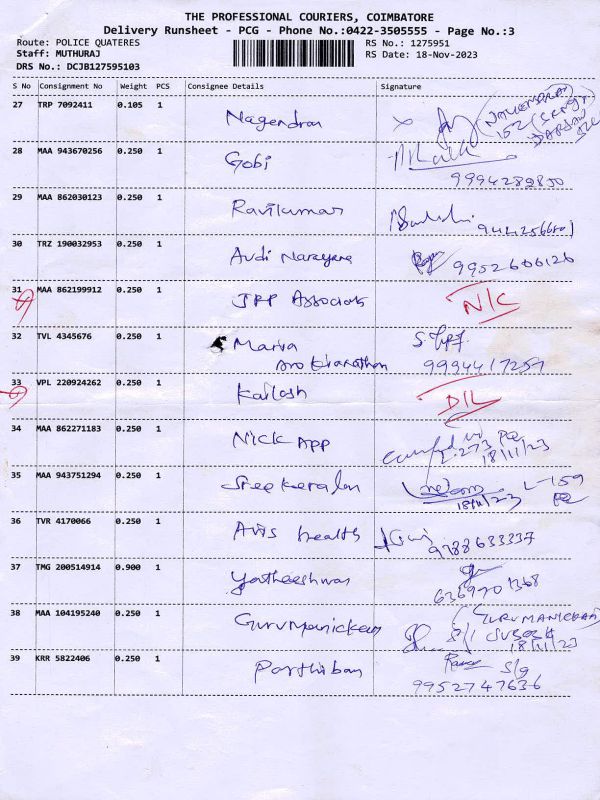 THE PROFESSIONAL COURIERS, COIMBATORE
Delivery Runsheet - PCG - Phone No.:0422-3505555 - Page No.:3
Route: POLICE QUATERES RS No.: 1275951
Staff: MUTHURAJ RS Date: 18-Nov-2023
DRS No.: DCJB127595103
S No Consignment No Weight PCS Consignee Details Signature
27 TRP 7092411 0.105 1 Nagendran
28 MAA 943670256 0.250 1 Gobi
29 MAA 862030123 0.250 1 Ravikumar
30 TRZ 190032953 0.250 1 Audi Narayana 9952606126
31 MAA 862199912 0.250 1 JPP Associats N/C
32 TVL 4345676 0.250 1 Maria
9994417257
33 VPL 220924262 0.250 1 Kailash D/L
34 MAA 862271183 0.250 1 Nick App
18/11/23
35 MAA 943751294 0.250 1 Sree Keralan L-159
18/11/23
36 TVR 4170066 0.250 1 Avis health 9788633337
37 TMG 200514914 0.900 1 Yatheeshwar
38 MAA 104195240 0.250 1 Gurumanickam GURUMANICKAM
18/11/23
39 KRR 5822406 0.250 1 Parthiban S/g
9952747636